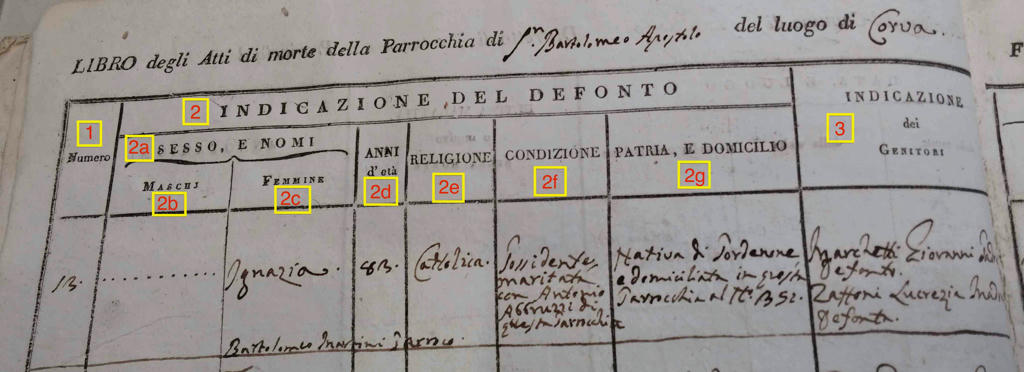 LIBRO degli Atti di morte della Parrocchia di Sn. Bartolomeo Apostolo del luogo di Corva.
1
Numero
2 INDICAZIONE DEL DEFONTO
2a SESSO, E NOMI
MASCHJ
2b
FEMMINE
2c
ANNI
d'età
2d
RELIGIONE
2e
CONDIZIONE
2f
PATRIA, E DOMICILIO
2g
3
INDICAZIONE
dei
GENITORI
13. ............... Ignazia. 83. Cattolica.
Possidente
maritata
con Antonio
Abbruzzi di
questa Parrochia
Nativa di Pordenone
e domiciliata in questa
Parrocchia al N.º 352.
Marchetti Giovanni
defonto.
Zaffoni Lucrezia Madre
defonta.
Bartolomeo Martini Parroco.
F